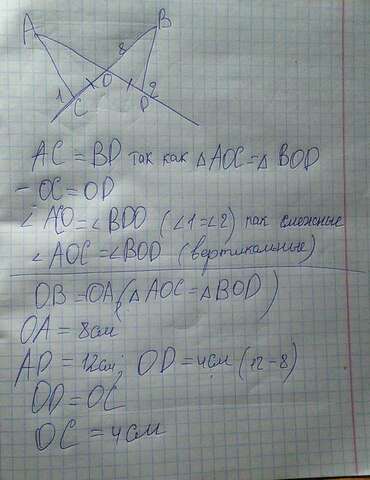 A B
8
1 C O D 2
AC = BD так как △AOC = △BOD
- OC = OD
∠ACO = ∠BDO (∠1 = ∠2) как смежные
∠AOC = ∠BOD (вертикальные)
OB = OA (△AOC = △BOD)
OA = 8см
AD = 12см; OD = 4см (12-8)
OD = OC
OC = 4см